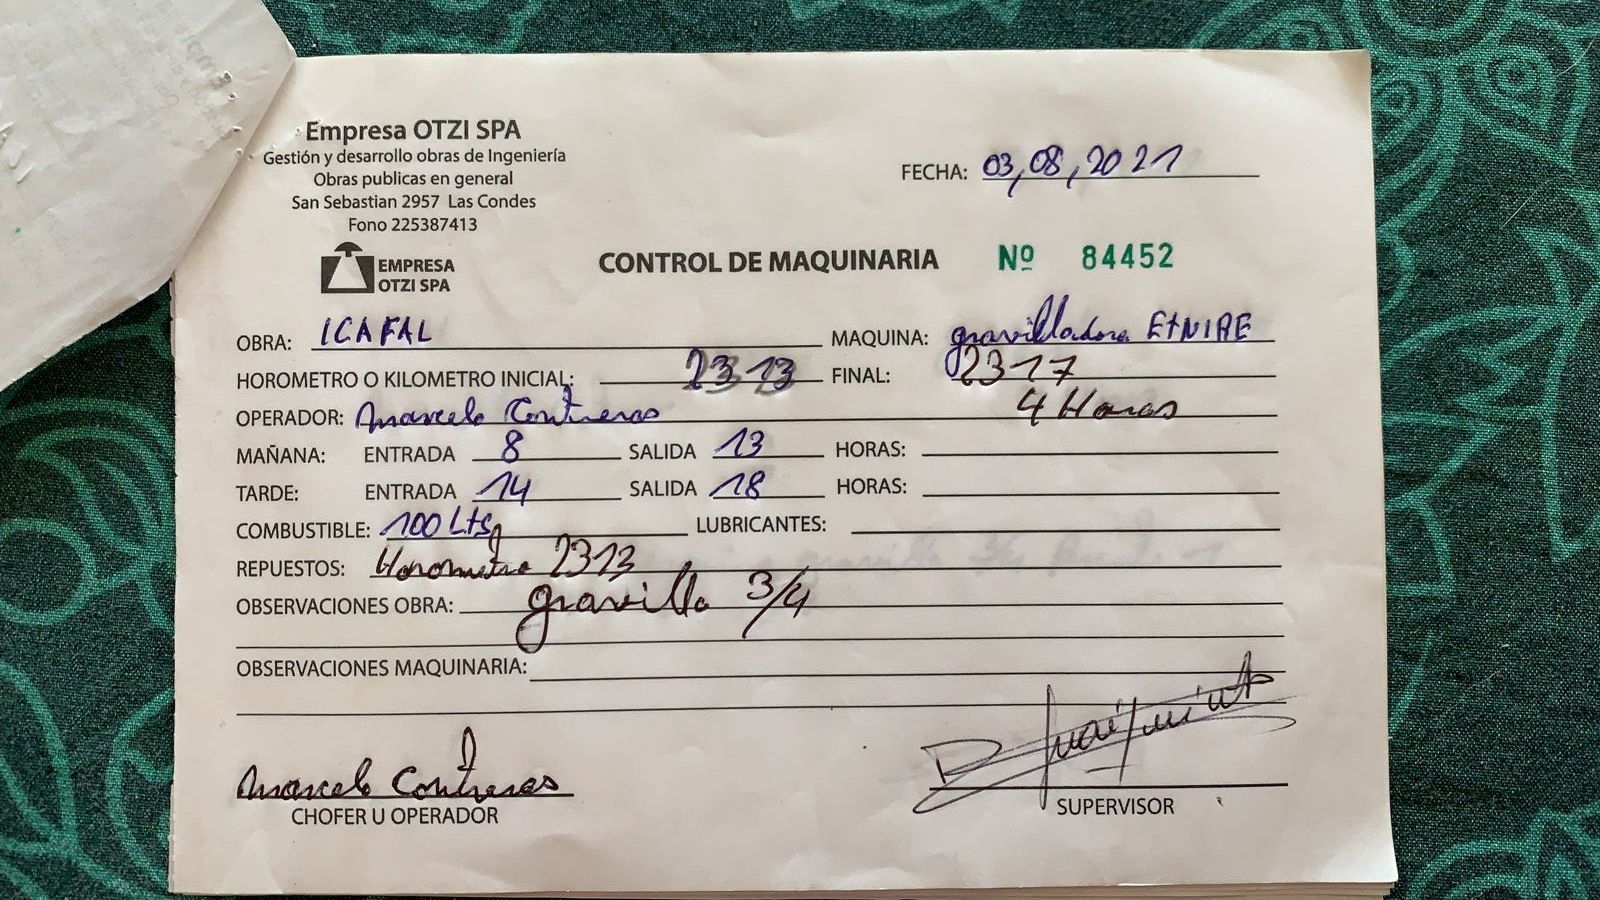 Empresa OTZI SPA
Gestión y desarrollo obras de Ingeniería
Obras publicas en general
San Sebastian 2957 Las Condes
Fono 225387413
EMPRESA
OTZI SPA
FECHA: 03,08,2021
CONTROL DE MAQUINARIA Nº 84452
OBRA: ICAFAL MAQUINA: gravilladora ETNIRE
HOROMETRO O KILOMETRO INICIAL: 2313 FINAL: 2317
OPERADOR: Marcelo Contreras 4 Horas
MAÑANA: ENTRADA 8 SALIDA 13 HORAS:
TARDE: ENTRADA 14 SALIDA 18 HORAS:
COMBUSTIBLE: 100 Lts LUBRICANTES:
REPUESTOS: Horometro 2313
OBSERVACIONES OBRA: gravilla 3/4
OBSERVACIONES MAQUINARIA:
Marcelo Contreras
CHOFER U OPERADOR SUPERVISOR